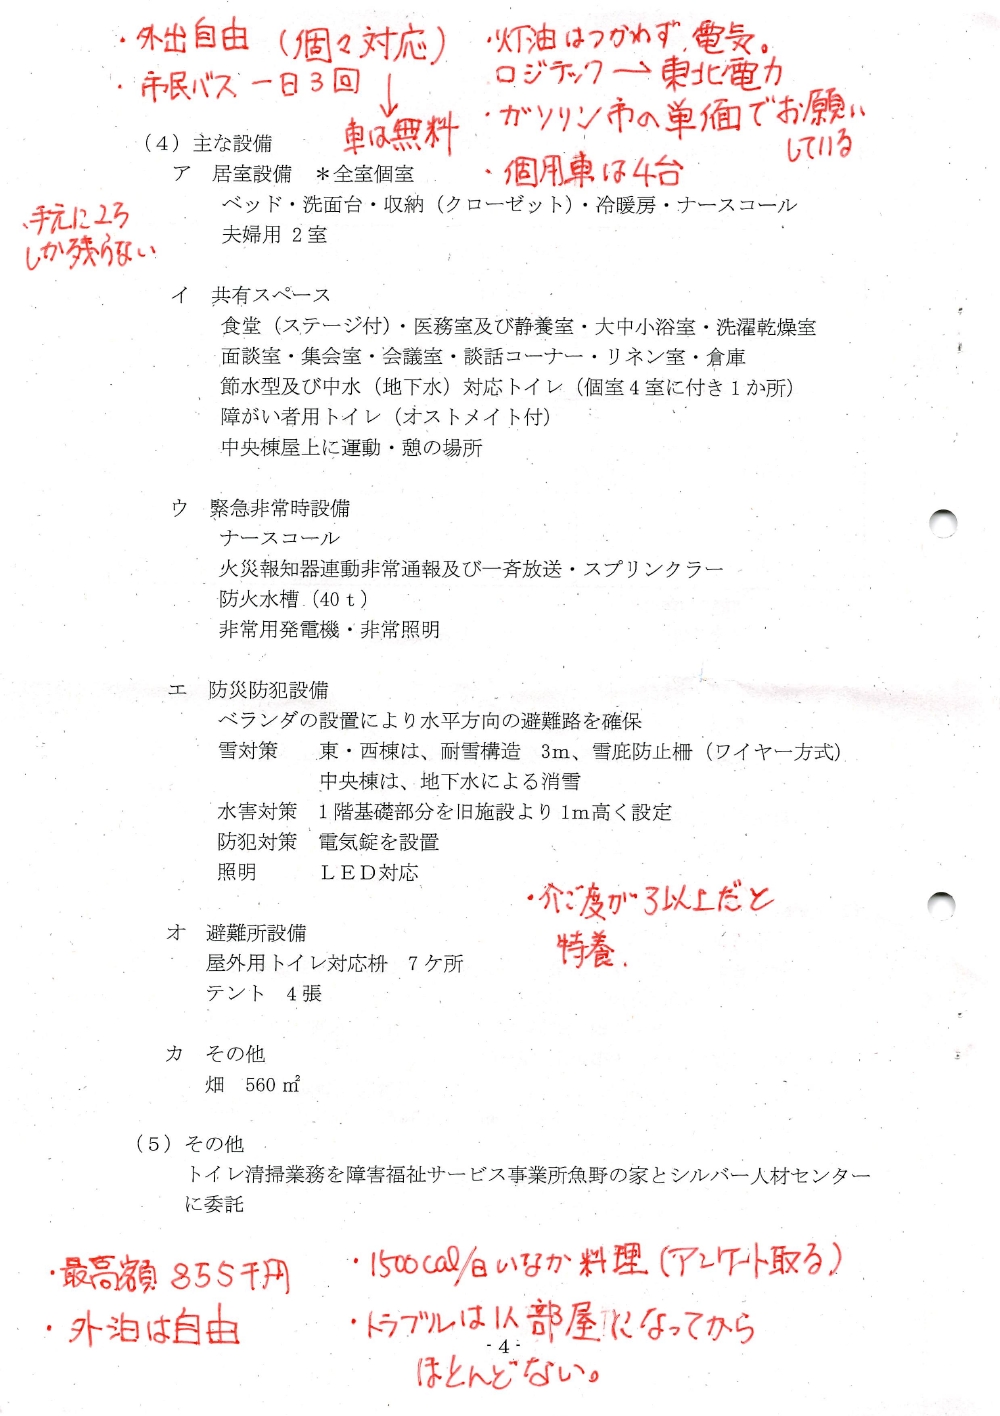 ・外出自由 (個々対応)
・市民バス 一日3回
車は無料
・灯油はつかわず、電気。
ロジテック→東北電力
・ガソリン市の単価でお願いしている
・個用車は4台
(4)主な設備
ア 居室設備 *全室個室
ベッド・洗面台・収納(クローゼット)・冷暖房・ナースコール
夫婦用 2室
、手元に2万
しか残らない
イ 共有スペース
食堂(ステージ付)・医務室及び静養室・大中小浴室・洗濯乾燥室
面談室・集会室・会議室・談話コーナー・リネン室・倉庫
節水型及び中水(地下水)対応トイレ(個室4室に付き1か所)
障がい者用トイレ(オストメイト付)
中央棟屋上に運動・憩の場所
ウ 緊急非常時設備
ナースコール
火災報知器連動非常通報及び一斉放送・スプリンクラー
防火水槽(40t)
非常用発電機・非常照明
エ 防災防犯設備
ベランダの設置により水平方向の避難路を確保
雪対策 東・西棟は、耐雪構造 3m、雪庇防止柵(ワイヤー方式)
中央棟は、地下水による消雪
水害対策 1階基礎部分を旧施設より1m高く設定
防犯対策 電気錠を設置
照明 LED対応
・介ご度が3以上だと
特養.
オ 避難所設備
屋外用トイレ対応枡 7ケ所
テント 4張
カ その他
畑 560㎡
(5)その他
トイレ清掃業務を障害福祉サービス事業所魚野の家とシルバー人材センター
に委託
・最高額 855千円
・外泊は自由
・1500cal/日いなか料理(アンケート取る)
・トラブルは1人部屋になってから
ほとんどない。
- 4 -